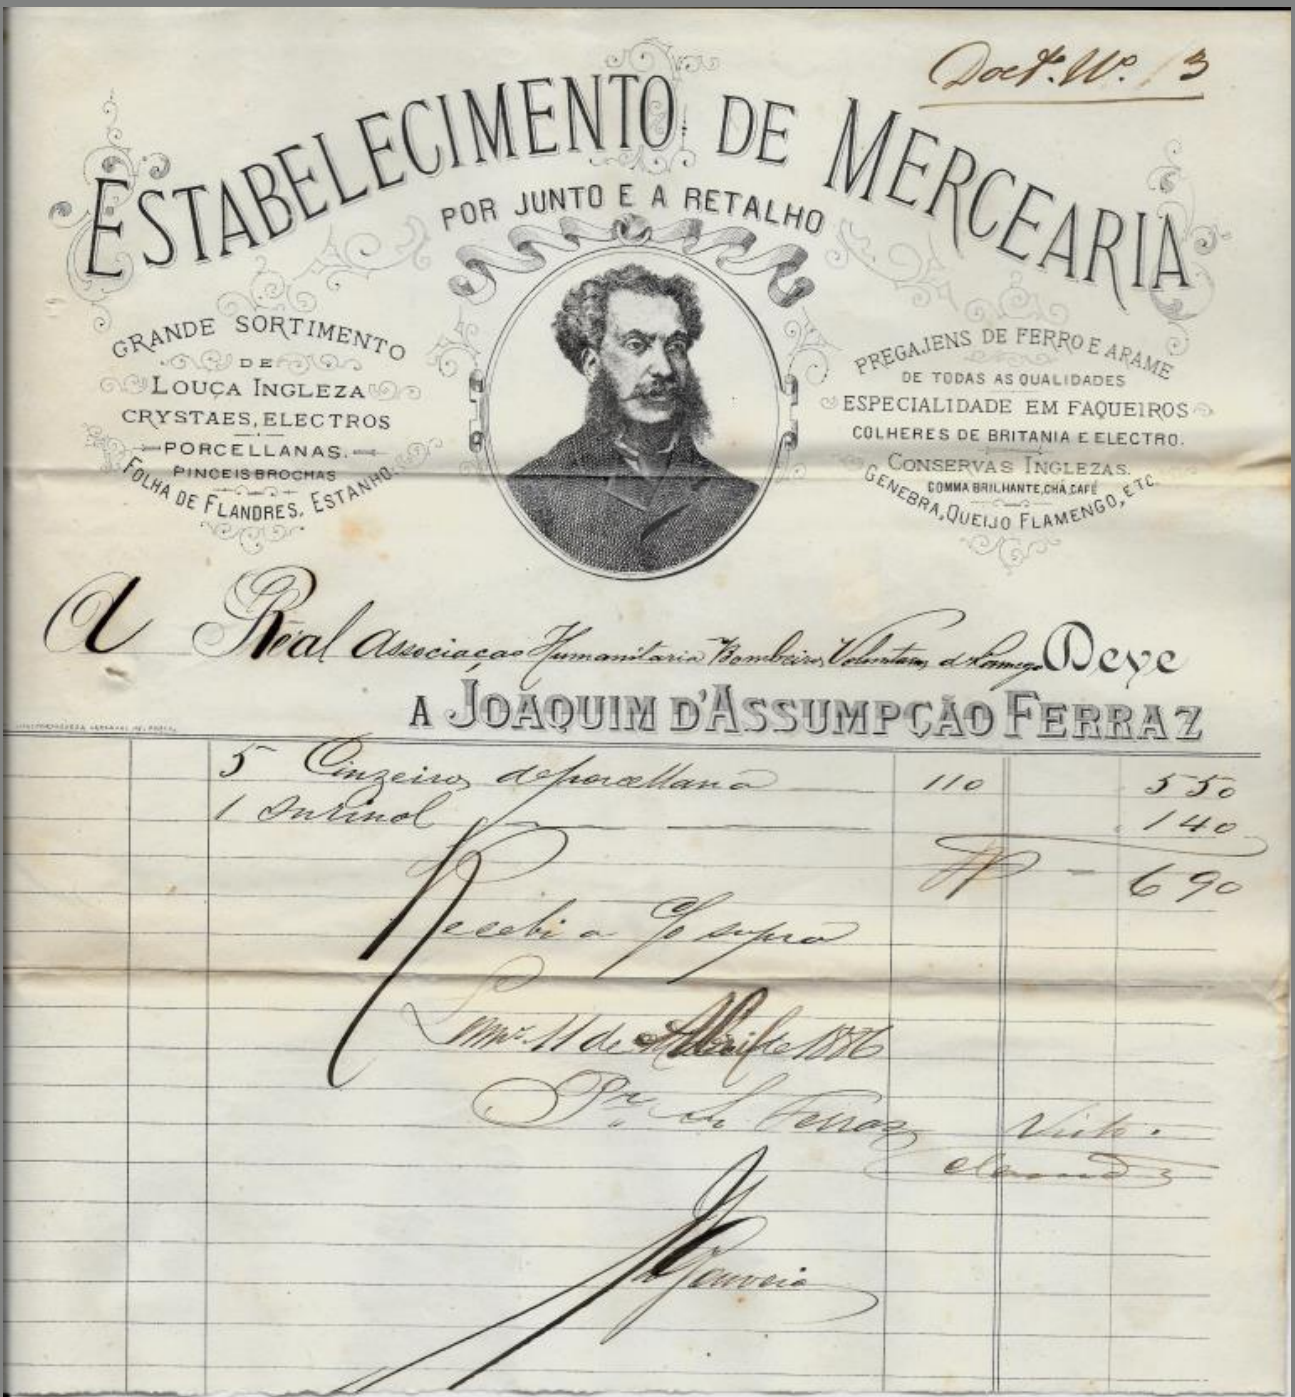 Doct.º N.º 13
ESTABELECIMENTO DE MERCEARIA
POR JUNTO E A RETALHO
GRANDE SORTIMENTO
DE
LOUÇA INGLEZA
CRYSTAES, ELECTROS
PORCELLANAS.
PINCEIS BROCHAS
FOLHA DE FLANDRES, ESTANHO.
PREGAJENS DE FERRO E ARAME
DE TODAS AS QUALIDADES
ESPECIALIDADE EM FAQUEIROS
COLHERES DE BRITANIA E ELECTRO.
CONSERVAS INGLEZAS.
GOMMA BRILHANTE, CHÁ, CAFÉ
GENEBRA, QUEIJO FLAMENGO, ETC.
A Real Associaçao Humanitaria Bombeiros Voluntarios de Lamego Deve
A JOAQUIM D'ASSUMPÇÃO FERRAZ
5 Cinzeiros de porcellana 110 550
1 Ourinol 140
690
Recebi a supra
11 de Abril de 1886
Ferraz
Visto.
Gouveia